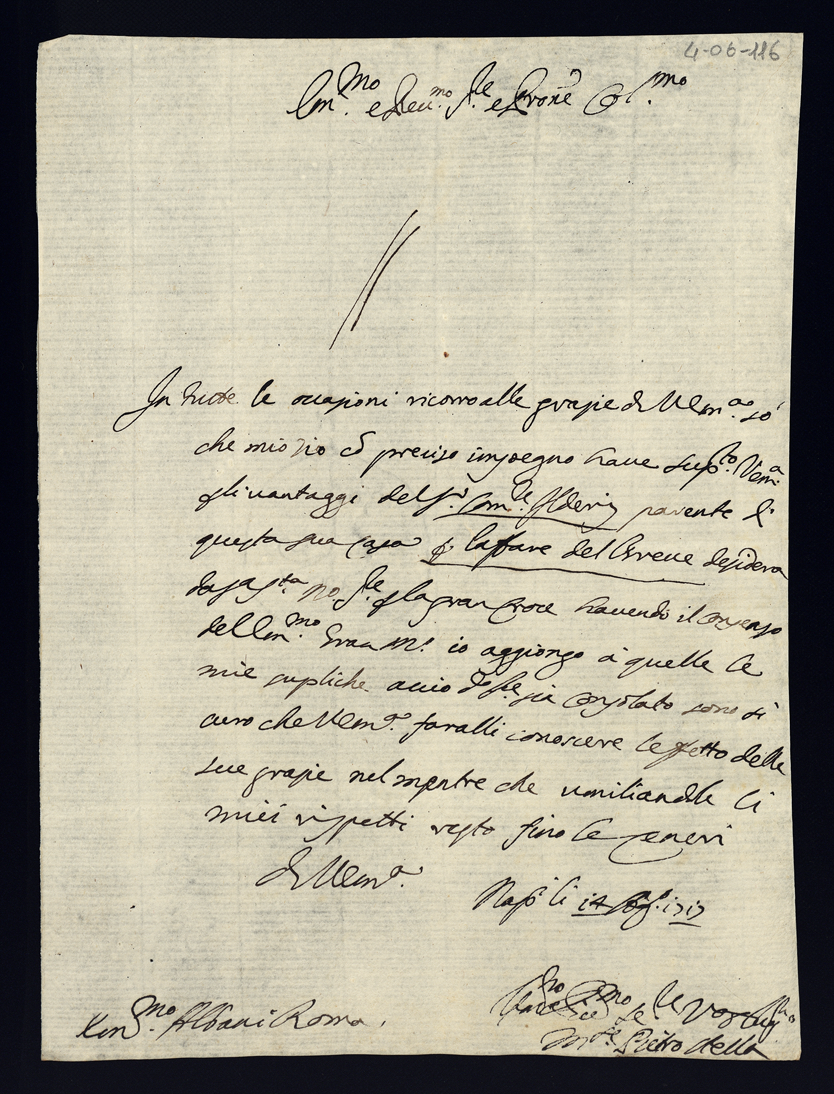 4-06-116
Em.mo e Rev.mo Sre e Prone Col.mo
In tutte le occasioni ricorro alle grazie di V Em.a so
che mio Zio cõ preciso impegno have sup.to V em.a
gli vantaggi del S.r Com.re parente di
questa sua casa l'affare del Breve desidera
la gran Croce havendo il consenso
dell'Em.mo Gran M.o io aggiongo à quelle le
mie supliche accio sia consolato sono si
curo che V Em.a faralli conoscere l'effetto delle
sue grazie nel mentre che umiliandole li
miei rispetti resto fino le ceneri
di V Em.a
Napoli 14
Em.mo Albani Roma.
Pietro della